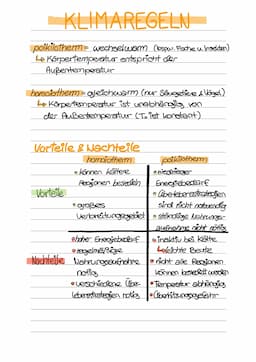 KLIMAREGELN
poikilotherm = wechselwarm (bspw. Fische u. Insekten)
↳ Körpertemperatur entspricht der
Außentemperatur
homoiotherm = gleichwarm (nur Säugetiere & Vögel)
↳ Körpertemperatur ist unabhängig von
der Außentemperatur (T. ist konstant)
Vorteile & Nachteile
homoiotherm poikilotherm
Vorteile
• können kältere
Regionen besiedeln
• großes
Verbreitungsgebiet
• niedriger
Energiebedarf
• Überlebensstrategien
sind nicht notwendig
• ständige Nahrungs-
aufnahme nicht nötig
Nachteile
• hoher Energiebedarf
• regelmäßige
Nahrungsaufnahme
nötig
• verschiedene Übe-
lebensstrategien nötig
• inaktiv bei Kälte
↳ leichte Beute
• nicht alle Regionen
können besiedelt werden
• Temperatur abhängig
• Überhitzungsgefahr